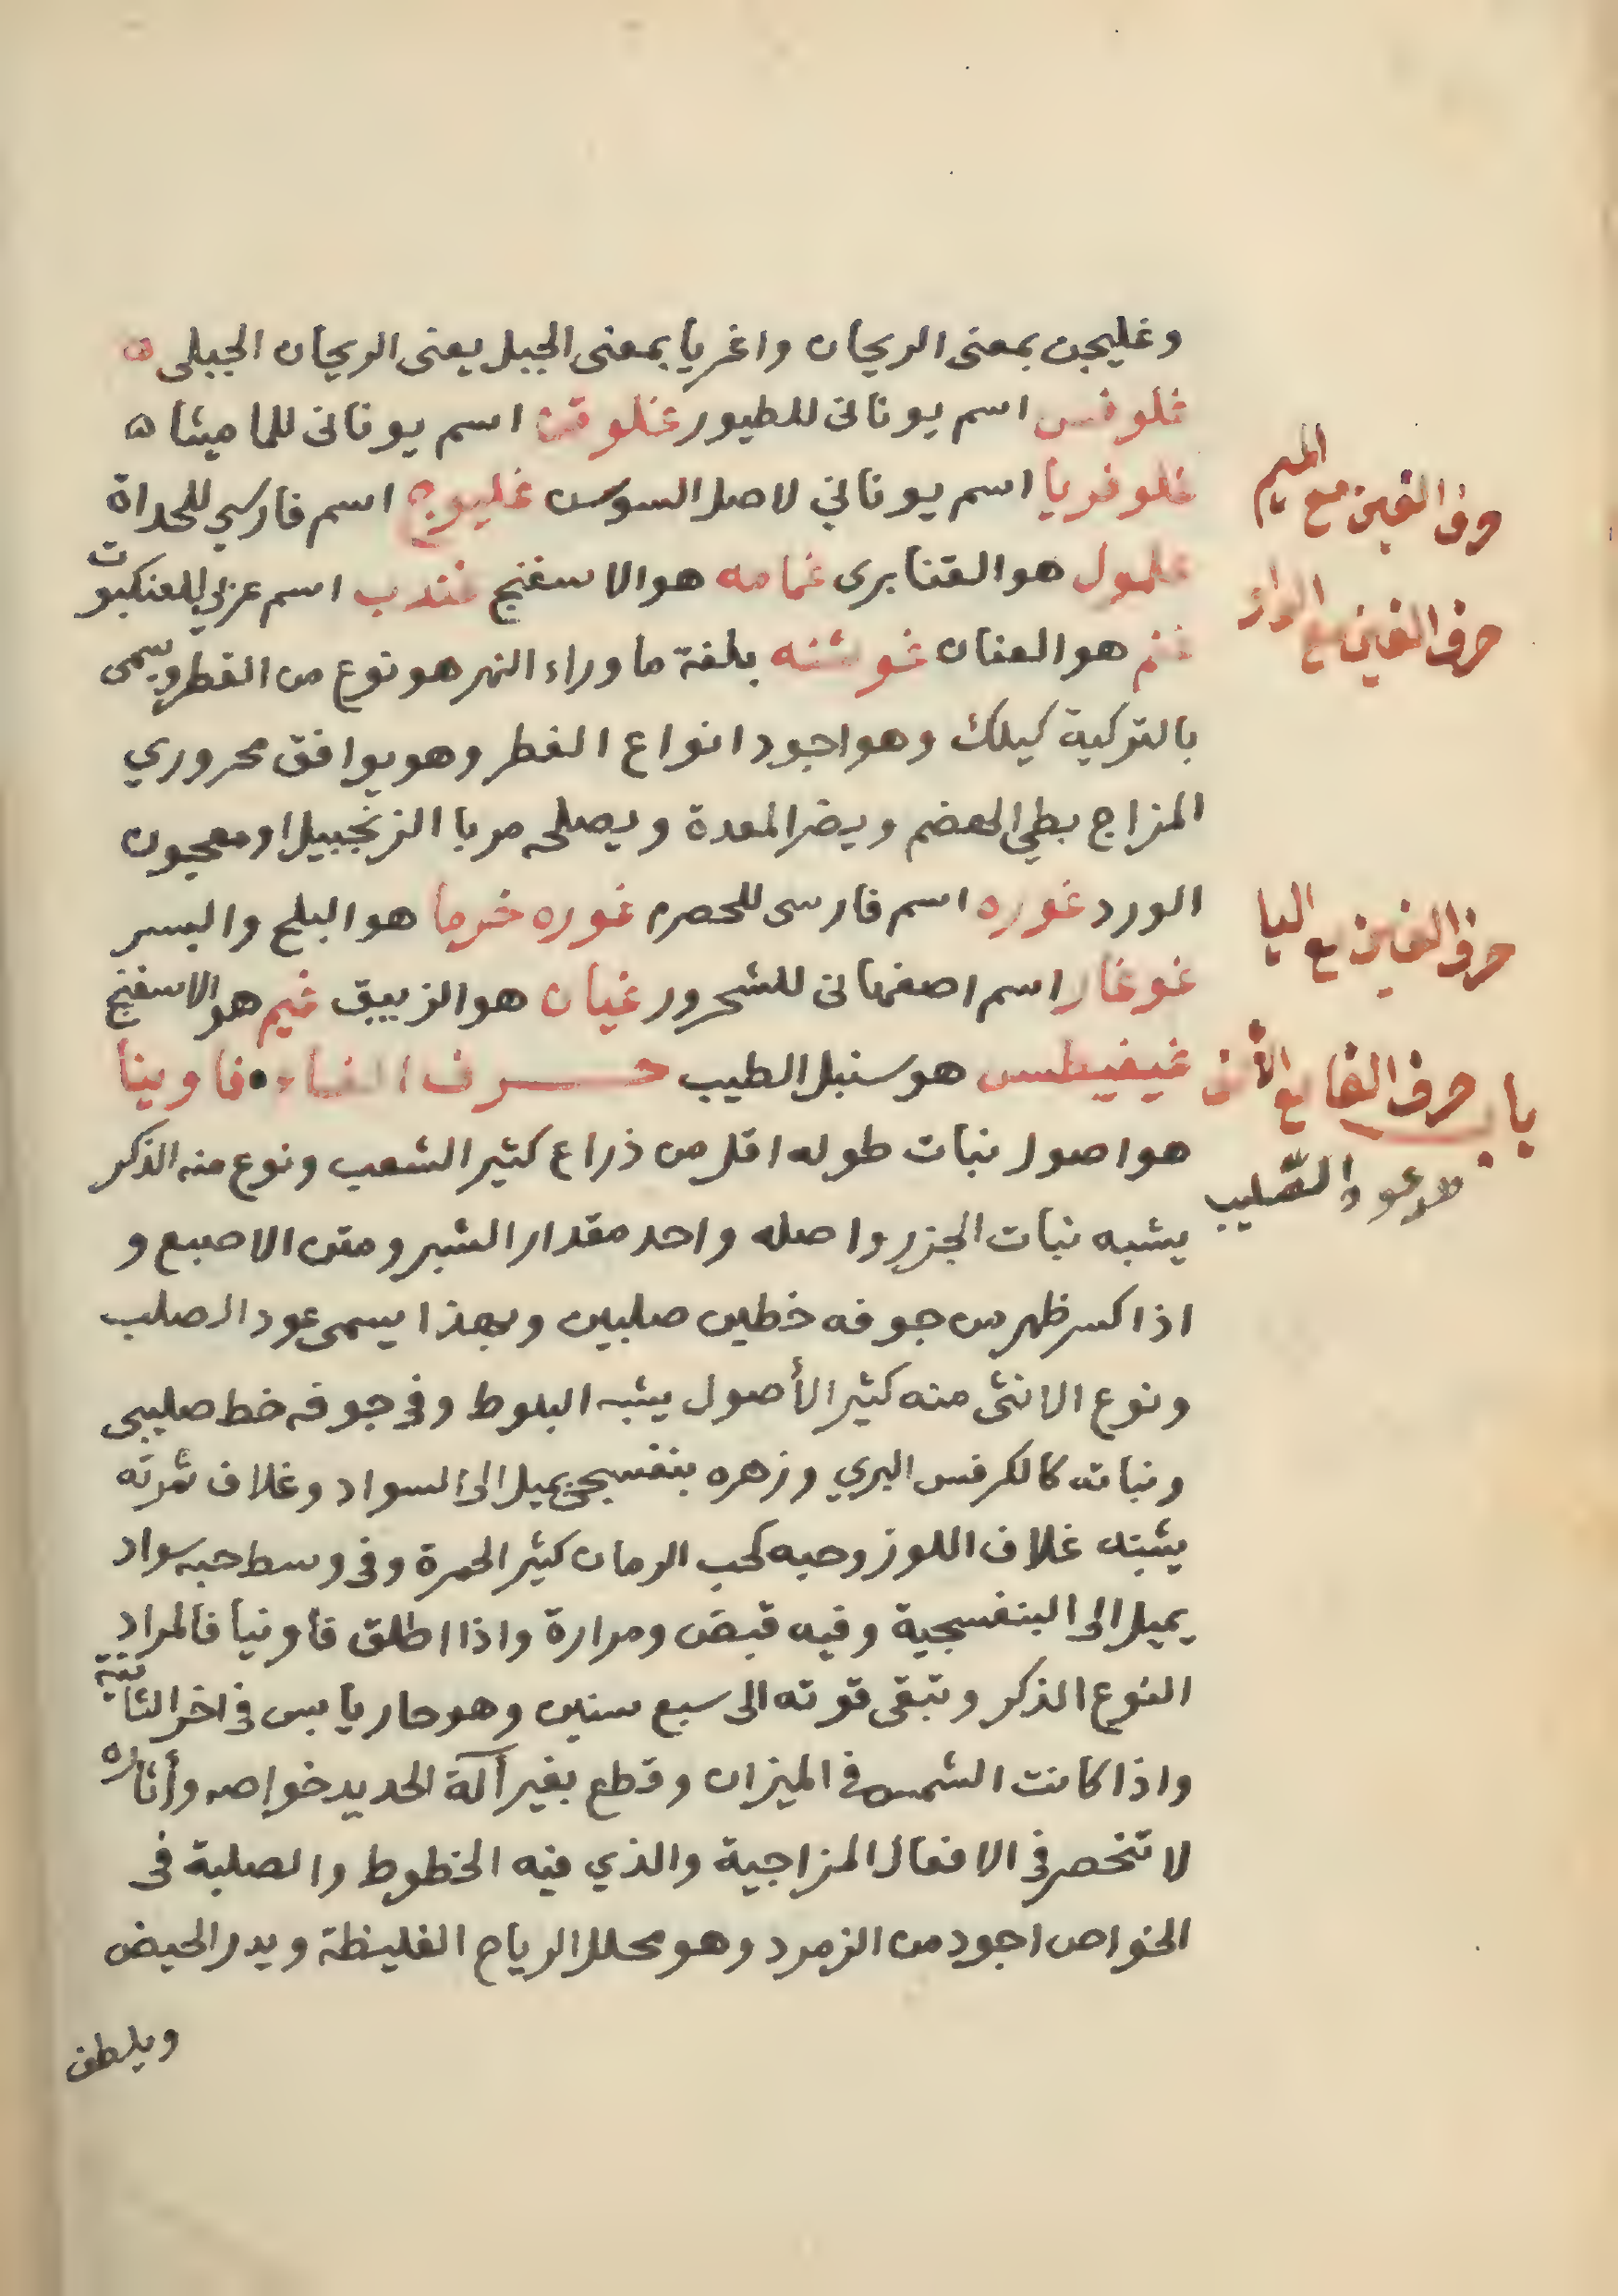 وغليجن بمعنى الريحان واغريا بمعنى الجبل يعنى الريحان الجبلى ه
غلوفس اسم يونانى للطيور غنلوقن اسم يونانى للماميثا ه
غلوفريا اسم يوناني لاصل السوسن غليوج اسم فارسي للحداة
غلمول هو القنابرى غمامه هو الاسفنج غندب اسم عربي للعنكبوت
غنم هو العنان غوشنه بلغة ما وراء النهر هو نوع من الفطر ويسمى
بالتركية كيلك وهو اجود انواع الفطر وهو يوافق محروري
المزاج بطي الهضم ويضر المعدة ويصلحه مربا الزنجبيل او معجون
الورد غوره اسم فارسى للحصرم غوره خرما هو البلح والبسر
غوغار اسم اصفهانى للشحرور غيان هو الزيبق غيم هو الاسفنج
غيفيطس هو سنبل الطيب حرف الفاء فاوينا
هو اصول نبات طوله اقل من ذراع كثير الشعب ونوع منه الذكر
يشبه نبات الجزر واصله واحد مقدار الشبر ومتن الاصبع و
اذا كسر ظهر من جوفه خطين صلبين وبهذا يسمى عود الصلب
ونوع الانثى منه كثير الأصول يشبه البلوط وفى جوفه خط صليبى
ونباته كالكرفس البري وزهره بنفسجى يميل الى السواد وغلاف ثمرته
يشبه غلاف اللوز وحبه كحب الرمان كثير الحمرة وفى وسط حبه سواد
يميل الى البنفسجية وفيه قبض ومرارة واذا اطلق فاونيا فالمراد
النوع الذكر وتبقى قوته الى سبع سنين وهو حار يابس فى اخر الثانية
واذا كانت الشمس فى الميزان وقطع بغير آلة الحديد خواصه وأثاره
لا تنحصر فى الافعال المزاجية والذي فيه الخطوط والصلبة فى
الخواص اجود من الزمرد وهو محلل الرياح الغليظة ويدر الحيض
ويلطف
حرف الغين مع الميم
حرف الغين مع الواو
حرف الغين مع اليا
باب حرف الفا مع الألف
هو عود الصّليب